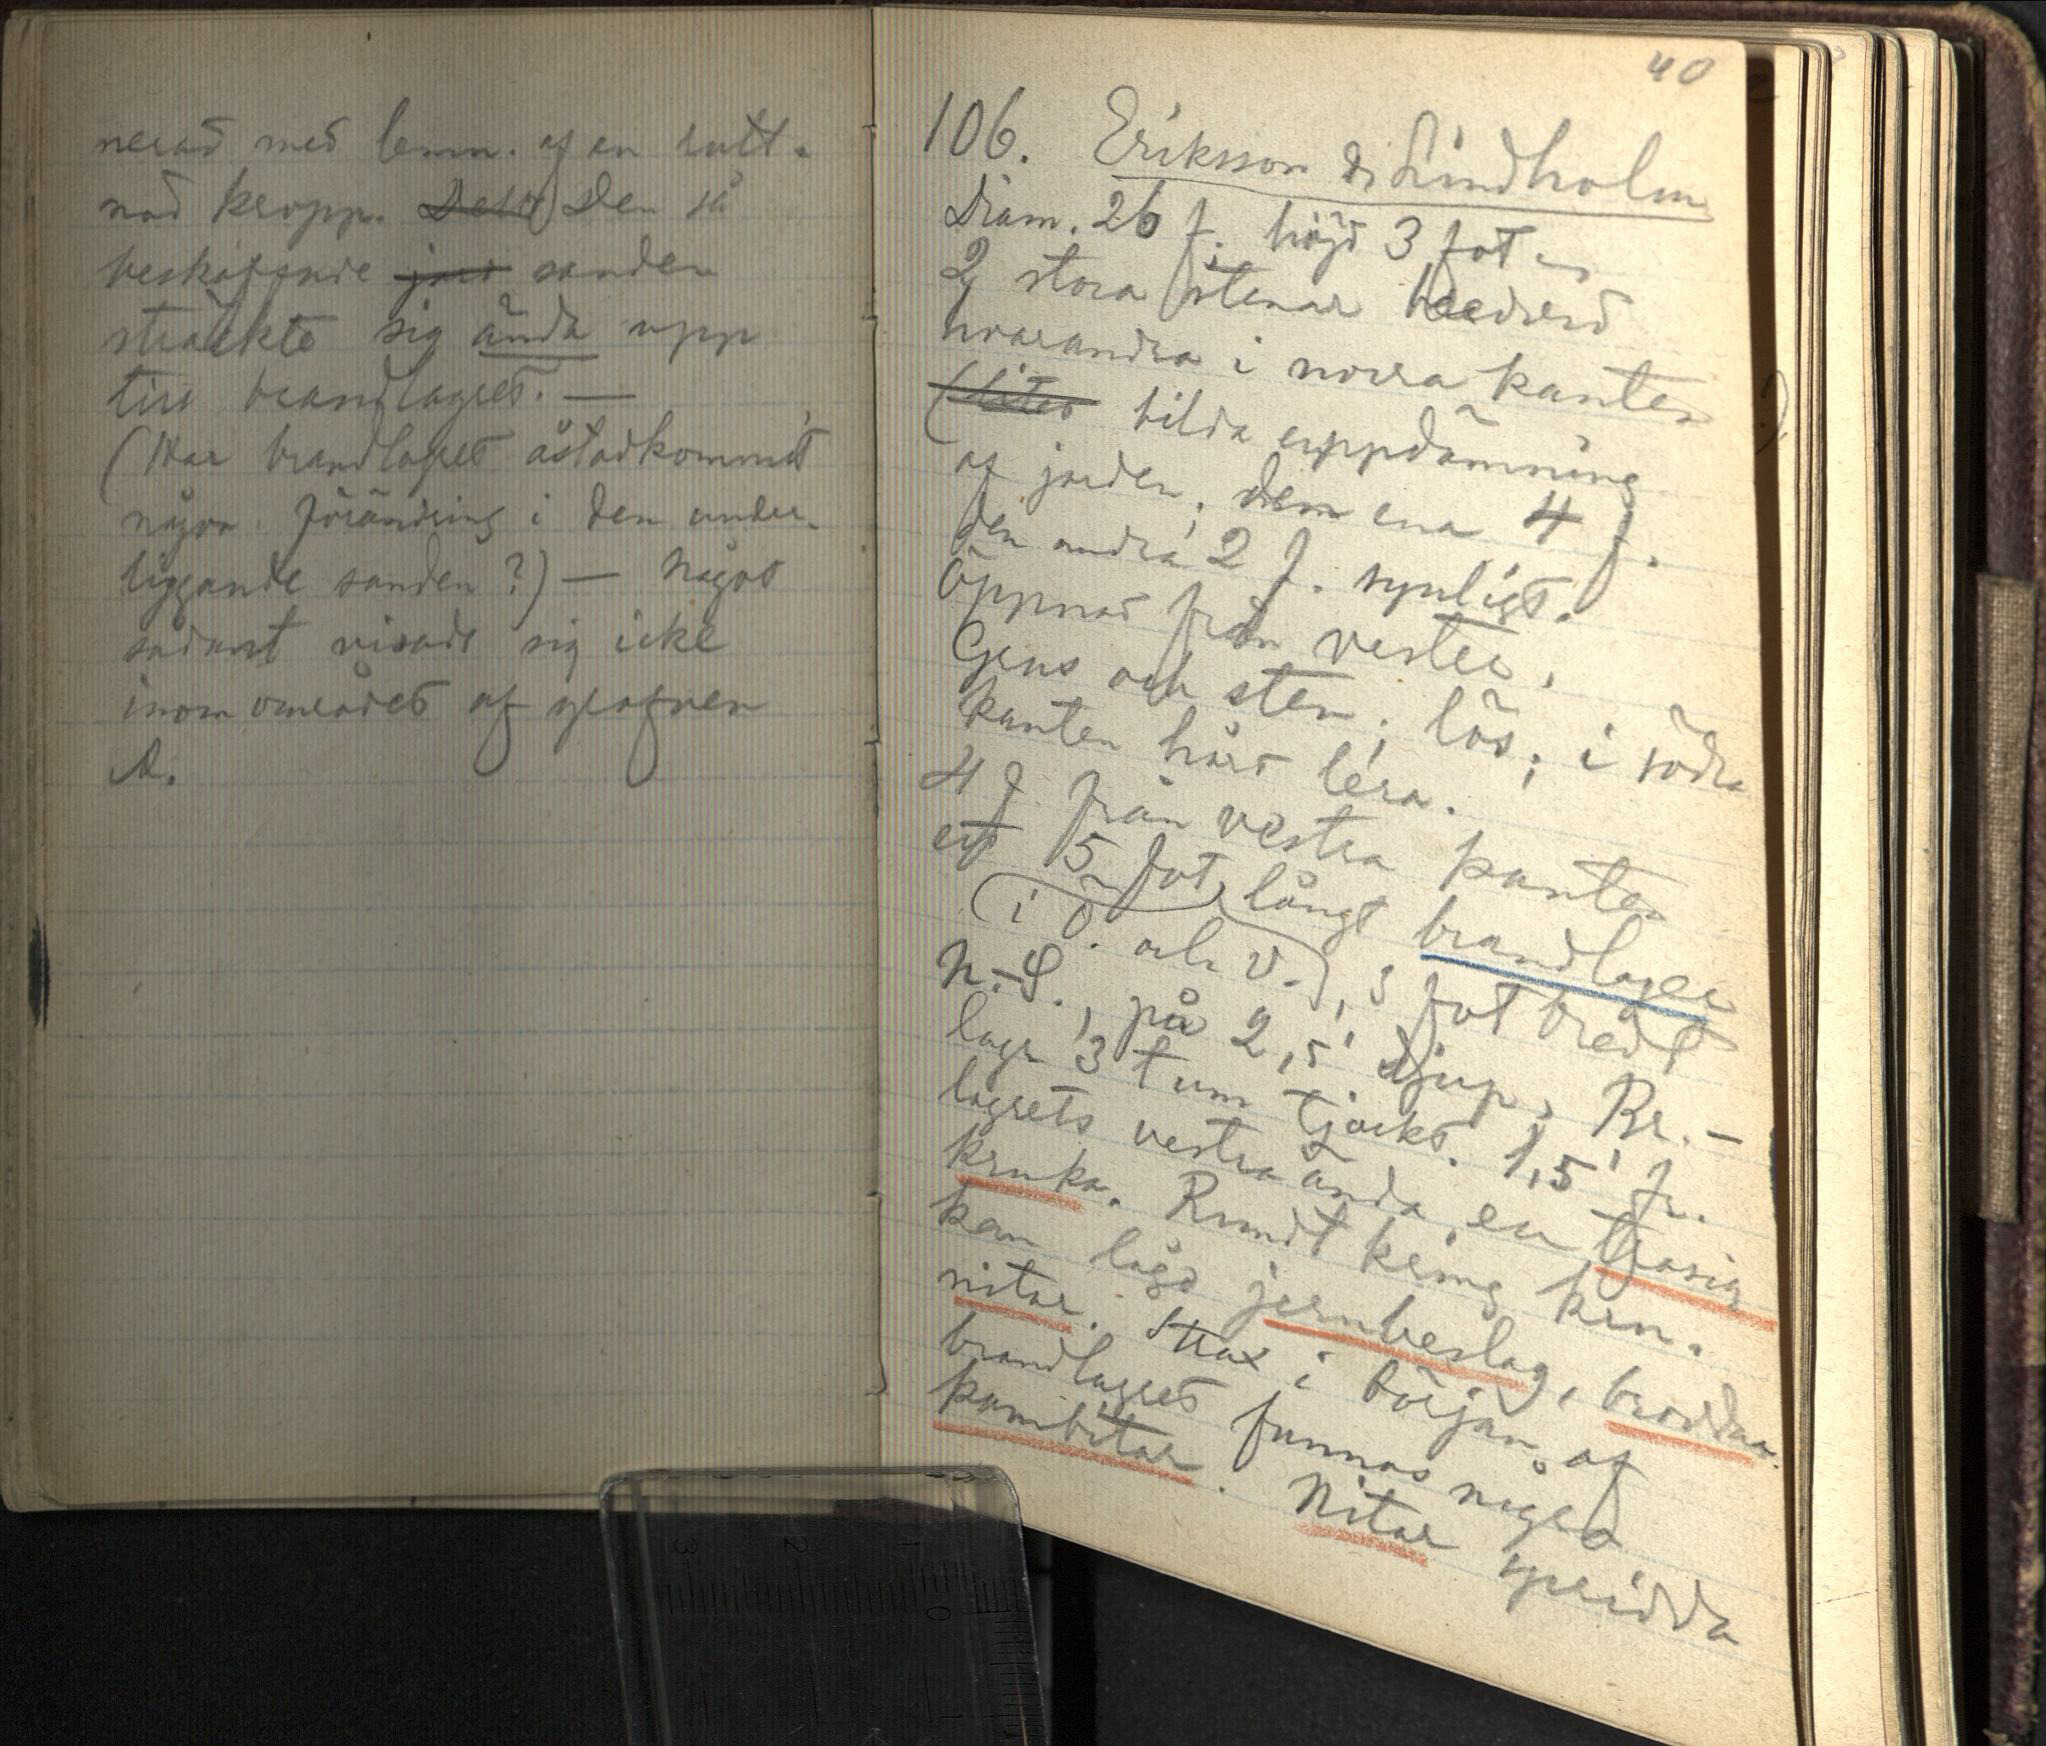 nerad med lemn. af en rutt-
nad kropp. Detta Den så
beskaffade jord sanden
sträckte sig ända upp
till brandlagret. —
(Har brandlagret åstadkommit
någon förändring i den under-
liggande sanden?) — Något
sådant visade sig icke
inom området af grafven
A.
40
106. Eriksson & Lindholm
Diam. 26 f. höjd 3 fot
2 stora stenar bredvid
hvarandra i norra kanten
( bilda uppdämning
af jorden; den ena 4 f.
den andra 2 f. synligt.
Öppnad från vester.
Grus och sten; lös; i södra
kanten hård lera.
4 f från vestra kanten
ett 5 fot långt brandlager
(i Ö. och V.), 3 fot bredt
N.-S., på 2,5' djup. Br.-
lagr 3 tum tjockt. 1,5' fr.
lagrets vestra ända en trasig
kruka. Rundt kring kru-
kan lågo jernbeslag, broddar
nitar. Strax i början af
brandlagret funnos några
kambitar. Nitar spridda